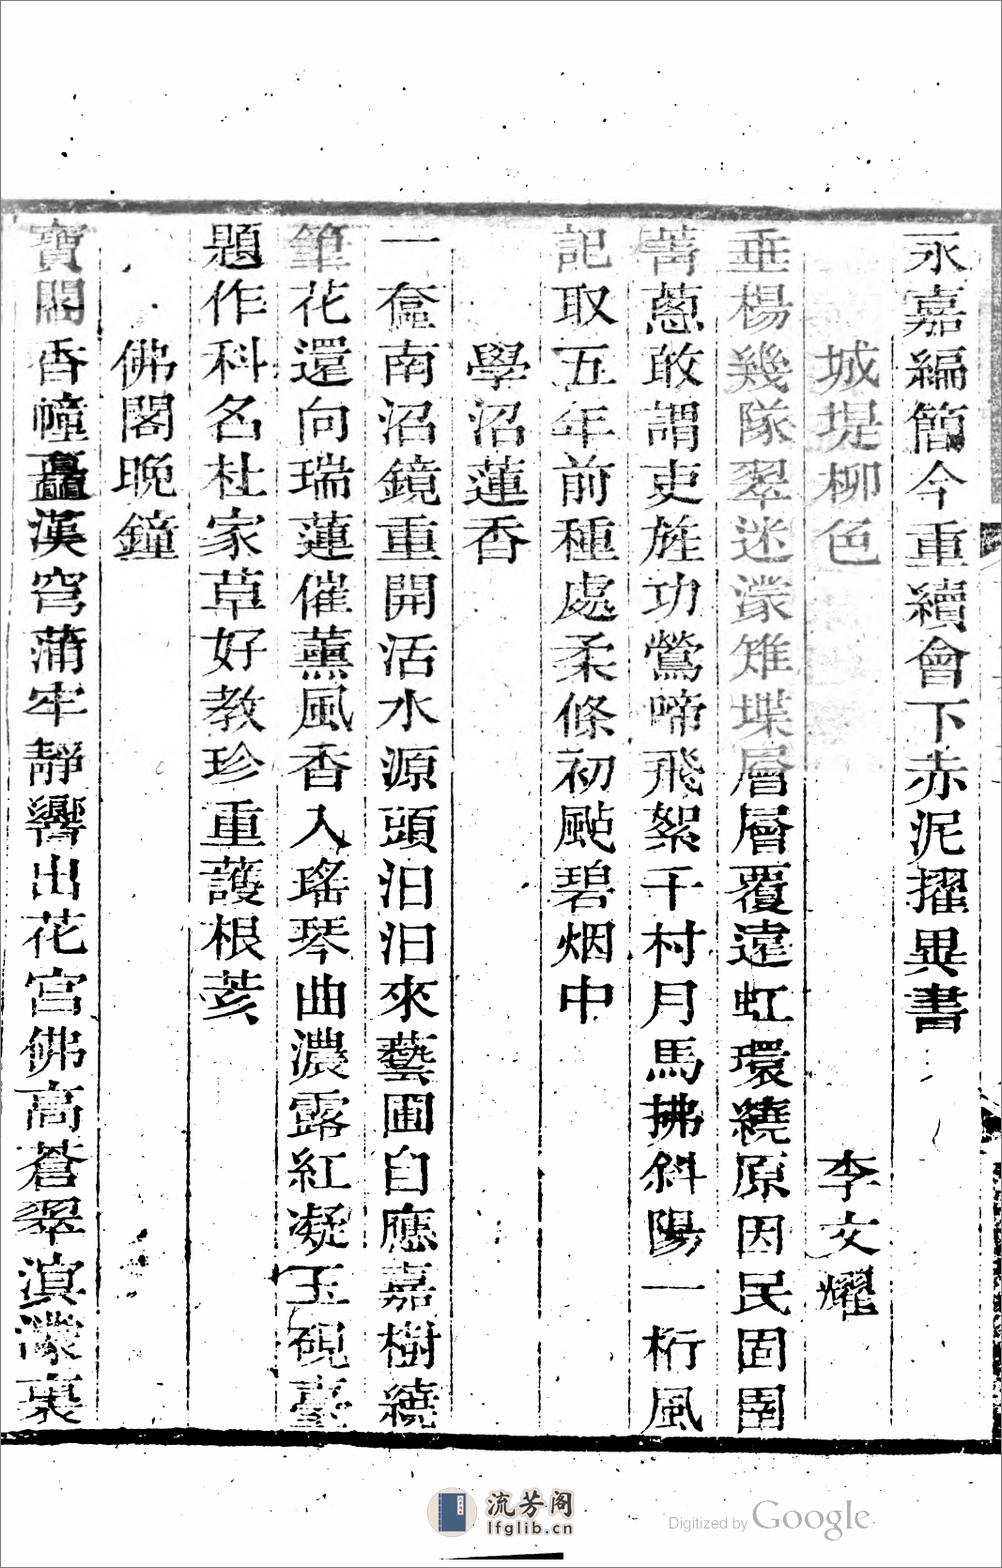 永嘉編簡今重續會下赤泥擢異書
城堤柳色 李文燿
垂楊幾隊翠迷濛雉堞層層覆遠虹環繞原因民固圉
菁蔥敢謂吏旌功鶯啼飛絮千村月馬拂斜陽一桁風
記取五年前種處柔條初颭碧烟中
學沼蓮香
一奩南沼鏡重開活水源頭汩汩來藝圃自應嘉樹繞
筆花還向瑞蓮催薰風香入瑤琴曲濃露紅凝玉硯臺
題作科名杜家草好教珍重護根荄
佛閣晚鐘
寶閣香幢矗漢穹蒲牢靜響出花宮佛高蒼翠濛裏
流芳阁
lfglib.cn
Digitized by Google